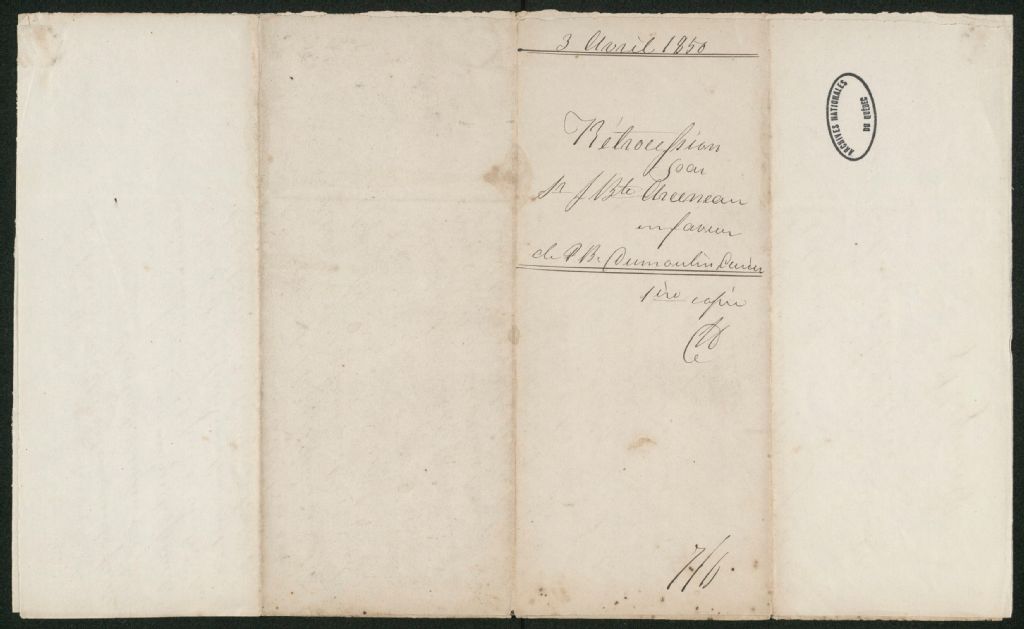 3 Avril 1850
Rétrocession
par
Sr J Bte Arceneau
en faveur
de P B. Dumoulin Ecuier
1ère copie
7/6.
ARCHIVES NATIONALES
DU QUÉBEC